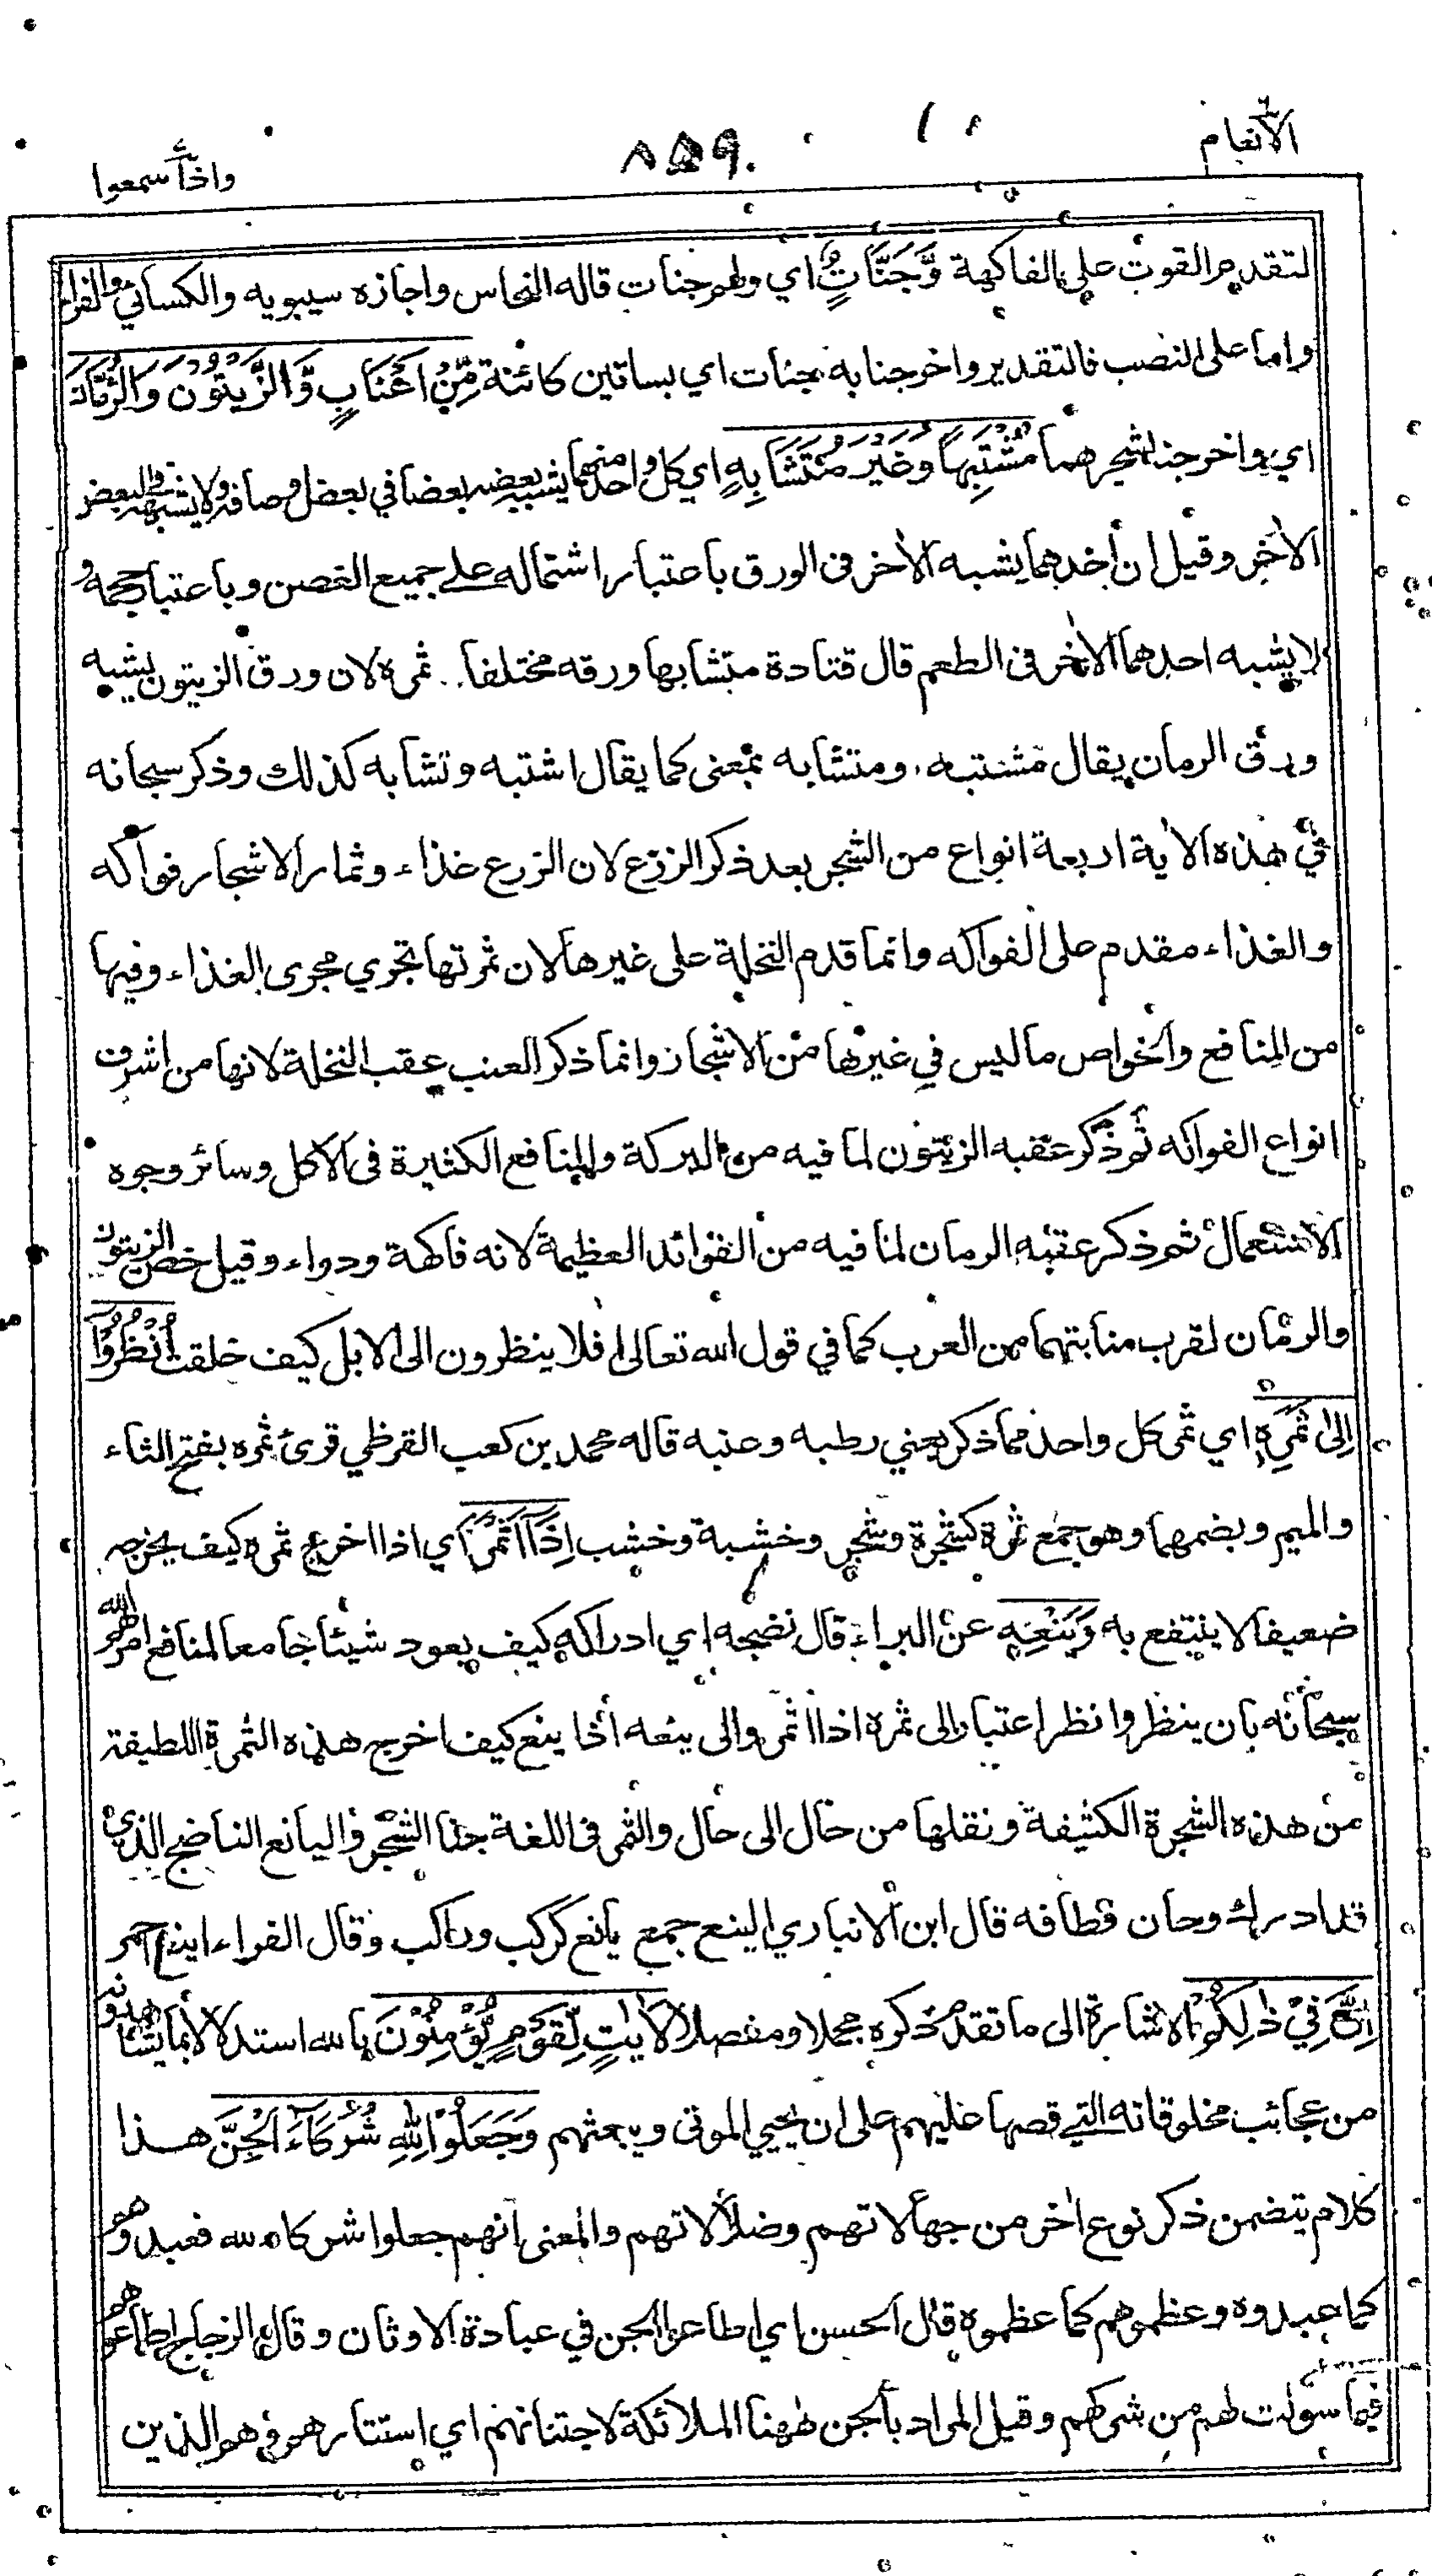 الأنعام
٨٥٩
واذا سمعوا
لتقدم القوت على الفاكهة وَّجَنَّاتٍ اي ولهم جنات قاله النحاس واجازه سيبويه والكسائي والفراء
واما على النصب فالتقدير واخرجنا به جنات اي بساتين كائنة مِّنْ اَعْنَابٍ وَّالزَّيْتُوْنَ وَالرُّمَّانَ
اي واخرجنا شجرهما مُشْتَبِهًا وَغَيْرَ مُتَشَابِهٍ اي كل واحد منهما يشبه بعضه بعضا في بعض اوصافه ولا يشبهه في البعض
الاٰخر وقيل ان احدهما يشبه الاٰخر فى الورق باعتبار اشتماله على جميع الغصن وباعتبار حجمه و
لا يشبه احدهما الاٰخر فى الطعم قال قتادة متشابها ورقه مختلفا ثمره لان ورق الزيتون يشبه
ورق الرمان يقال مشتبه ومتشابه بمعنى كما يقال اشتبه وتشابه كذلك وذكر سبحانه
في هذه الاٰية اربعة انواع من الشجر بعد ذكر الزرع لان الزرع غذاء وثمار الاشجار فواكه
والغذاء مقدم على الفواكه وانما قدم النخلة على غيرها لان ثمرتها تجري مجرى الغذاء وفيها
من المنافع والخواص ما ليس في غيرها من الاشجار وانما ذكر العنب عقب النخلة لانها من اشرف
انواع الفواكه ثم ذكر عقبه الزيتون لما فيه من البركة والمنافع الكثيرة فى الاكل وسائر وجوه
الاستعمال ثم ذكر عقبه الرمان لما فيه من الفوائد العظيمة لانه فاكهة ودواء وقيل خص الزيتون
والرمان لقرب منابتهما من العرب كما في قول الله تعالى افلا ينظرون الى الابل كيف خلقت اُنْظُرُوْٓا
اِلٰى ثَمَرِهٖ اي ثمر كل واحد مما ذكر يعني رطبه وعنبه قاله محمد بن كعب القرظي قرئ ثمره بفتح الثاء
والميم وبضمهما وهو جمع ثمرة كشجرة وشجر وخشبة وخشب اِذَآ اَثْمَرَ اي اذا اخرج ثمره كيف يخرجه
ضعيفا لا ينتفع به وَيَنْعِهٖ عن البراء قال نضجه اي ادراكه كيف يعود شيئا جامعا لمنافع امرهم الله
سبحانه بان ينظروا نظر اعتبار الى ثمره اذا اثمر والى ينعه اذا ينع كيف اخرج هذه الثمرة اللطيفة
من هذه الشجرة الكثيفة ونقلها من حال الى حال والثمر فى اللغة جنا الشجر واليانع الناضج الذي
قد ادرك وحان قطافه قال ابن الانباري الينع جمع يانع كركب وراكب وقال الفراء اينع احمر
اِنَّ فِيْ ذٰلِكُمْ الاشارة الى ما تقدم ذكره مجملا ومفصلا لَاٰيٰتٍ لِّقَوْمٍ يُّؤْمِنُوْنَ بالله استدلالا بما يشاهدونه
من عجائب مخلوقاته التي قصها عليهم على ان يحيي الموتى ويبعثهم وَجَعَلُوْا لِلّٰهِ شُرَكَآءَ الْجِنَّ هذا
كلام يتضمن ذكر نوع اٰخر من جهالاتهم وضلالاتهم والمعنى انهم جعلوا شركاء لله فعبدوهم
كما عبدوه وعظموهم كما عظموه قال الحسن اي اطاعوا الجن في عبادة الاوثان وقال الزجاج اطاعوهم
فيما سولت لهم من شركهم وقيل المراد بالجن ههنا الملائكة لاجتنانهم اي استتارهم وهم الذين